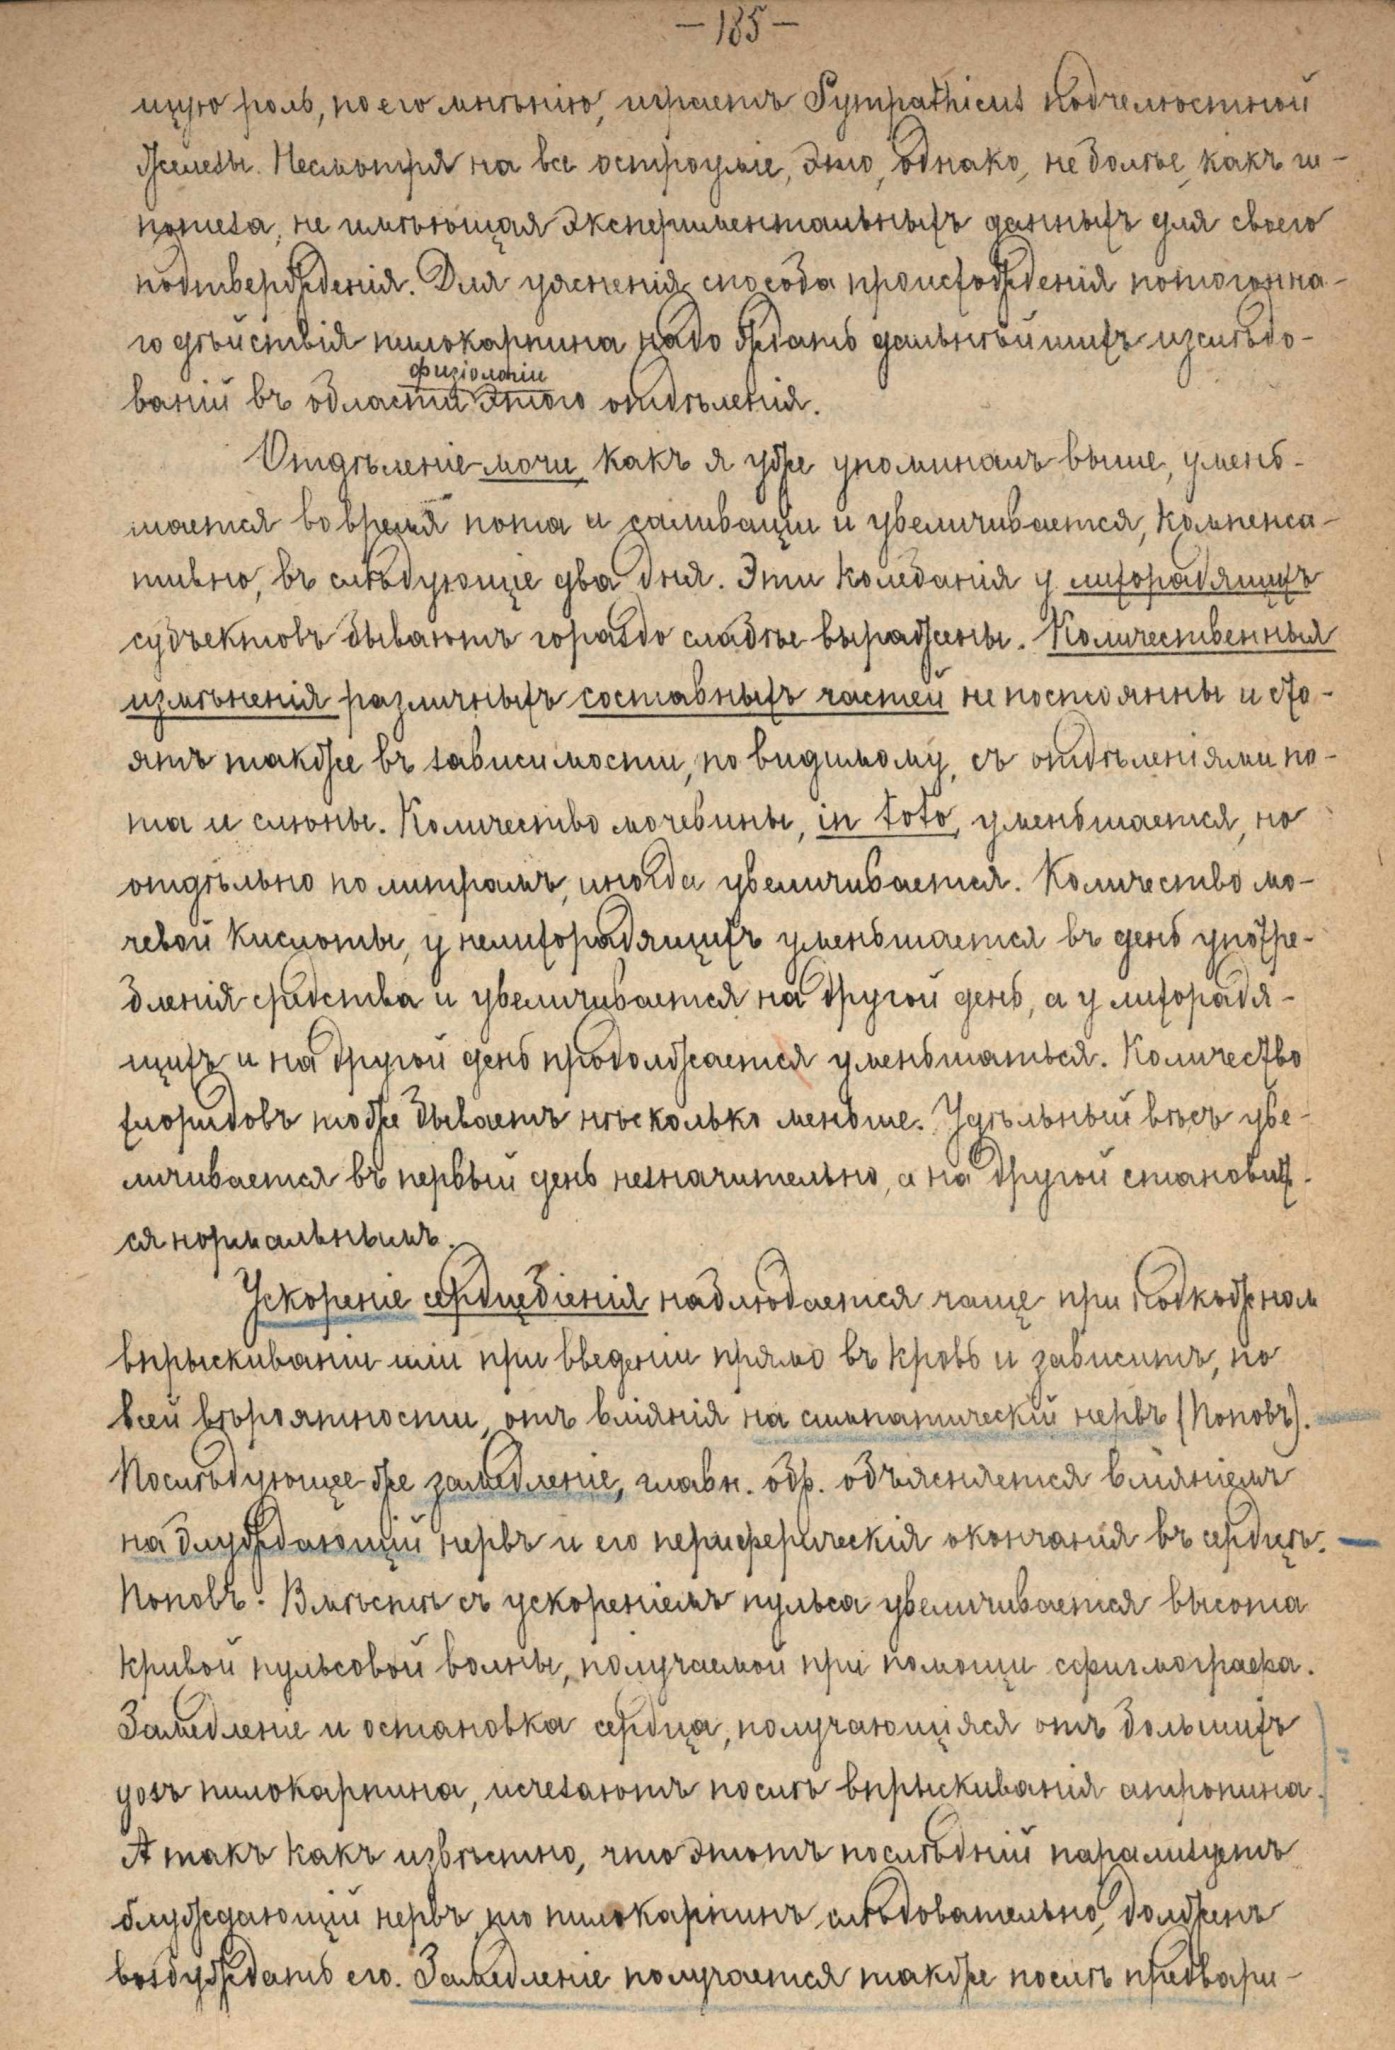 — 185 —
щую роль, по его мнѣнію, играетъ Sympathicus подчелюстной
железы. Несмотря на все остроуміе, это, однако, не болѣе, какъ ги-
потеза, не имѣющая экспериментальныхъ данныхъ для своего
подтвержденія. Для уясненія способа происхожденія потогонна-
го дѣйствія пилокарпина надо ждать дальнѣйшихъ изслѣдо-
физіологіи
ваній въ области этого отдѣленія.
Отдѣленіе мочи, какъ я уже упоминалъ выше, умень-
шается во время пота и саливаціи и увеличивается, компенса-
тивно, въ слѣдующіе два дня. Эти колебанія у лихорадящихъ
субъектовъ бываютъ гораздо слабѣе выражены. Количественныя
измѣненія различныхъ составныхъ частей не постоянны и сто-
ятъ также въ зависимости, по видимому, съ отдѣленіями по-
та и слюны. Количество мочевины, in toto, уменьшается, но
отдѣльно по литрамъ, иногда увеличивается. Количество мо-
чевой кислоты, у нелихорадящихъ уменьшается въ день употре-
бленія средства и увеличивается на другой день, а у лихорадя-
щихъ и на другой день продолжается уменьшаться. Количество
хлоридовъ тоже бываетъ нѣсколько меньше. Удѣльный вѣсъ уве-
личивается въ первый день незначительно, а на другой становит-
ся нормальнымъ.
Ускореніе сердцебіенія наблюдается чаще при подкожном
впрыскиваніи или при введеніи прямо въ кровь и зависитъ, по
всей вѣроятности, отъ вліянія на симпатическій нервъ (Поповъ).
Послѣдующее же замедленіе, главн. обр. объясняется вліяніемъ
на блуждающій нервъ и его периферическія окончанія въ сердцѣ.
Поповъ. Вмѣстѣ съ ускореніемъ пульса увеличивается высота
кривой пульсовой волны, получаемой при помощи сфигмографа.
Замедленіе и остановка сердца, получающіяся отъ большихъ
дозъ пилокарпина, исчезаютъ послѣ впрыскиванія атропина.
А такъ какъ извѣстно, что этотъ послѣдній парализуетъ
блуждающій нервъ, то пилокарпинъ слѣдовательно, долженъ
возбуждать его. Замедленіе получается также послѣ предвари-